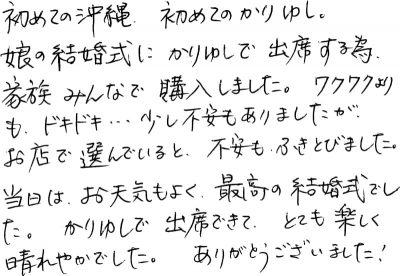 初めての沖縄、初めてのかりゆし。
娘の結婚式に かりゆしで 出席する為、
家族 みんなで 購入しました。 ワクワクより
も、ドキドキ… 少し不安もありましたが、
お店で 選んでいると、不安も ふきとびました。
当日は、お天気もよく、最高の結婚式でし
た。 かりゆしで 出席できて、とても 楽しく
晴れやかでした。 ありがとうございました!